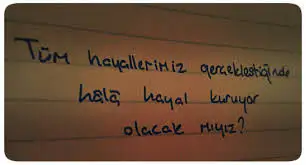 Tüm hayallerimiz gerçekleştiğinde
hâlâ hayal kuruyor
olacak mıyız?